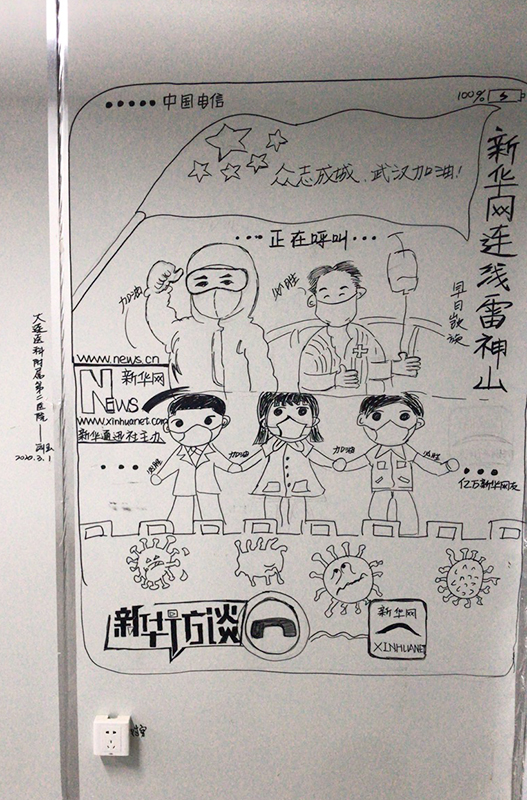 中国电信
100%
众志成城、武汉加油!
新华网连线雷神山
···正在呼叫···
加油
必胜
早日凯旋
www.news.cn
NEWS 新华网
www.xinhuanet.com
新华通讯社主办
必胜
加油
加油
必胜
亿万新华网友
新华访谈
新华网
XINHUANET
大连医科附属第二医院
2020.3.1